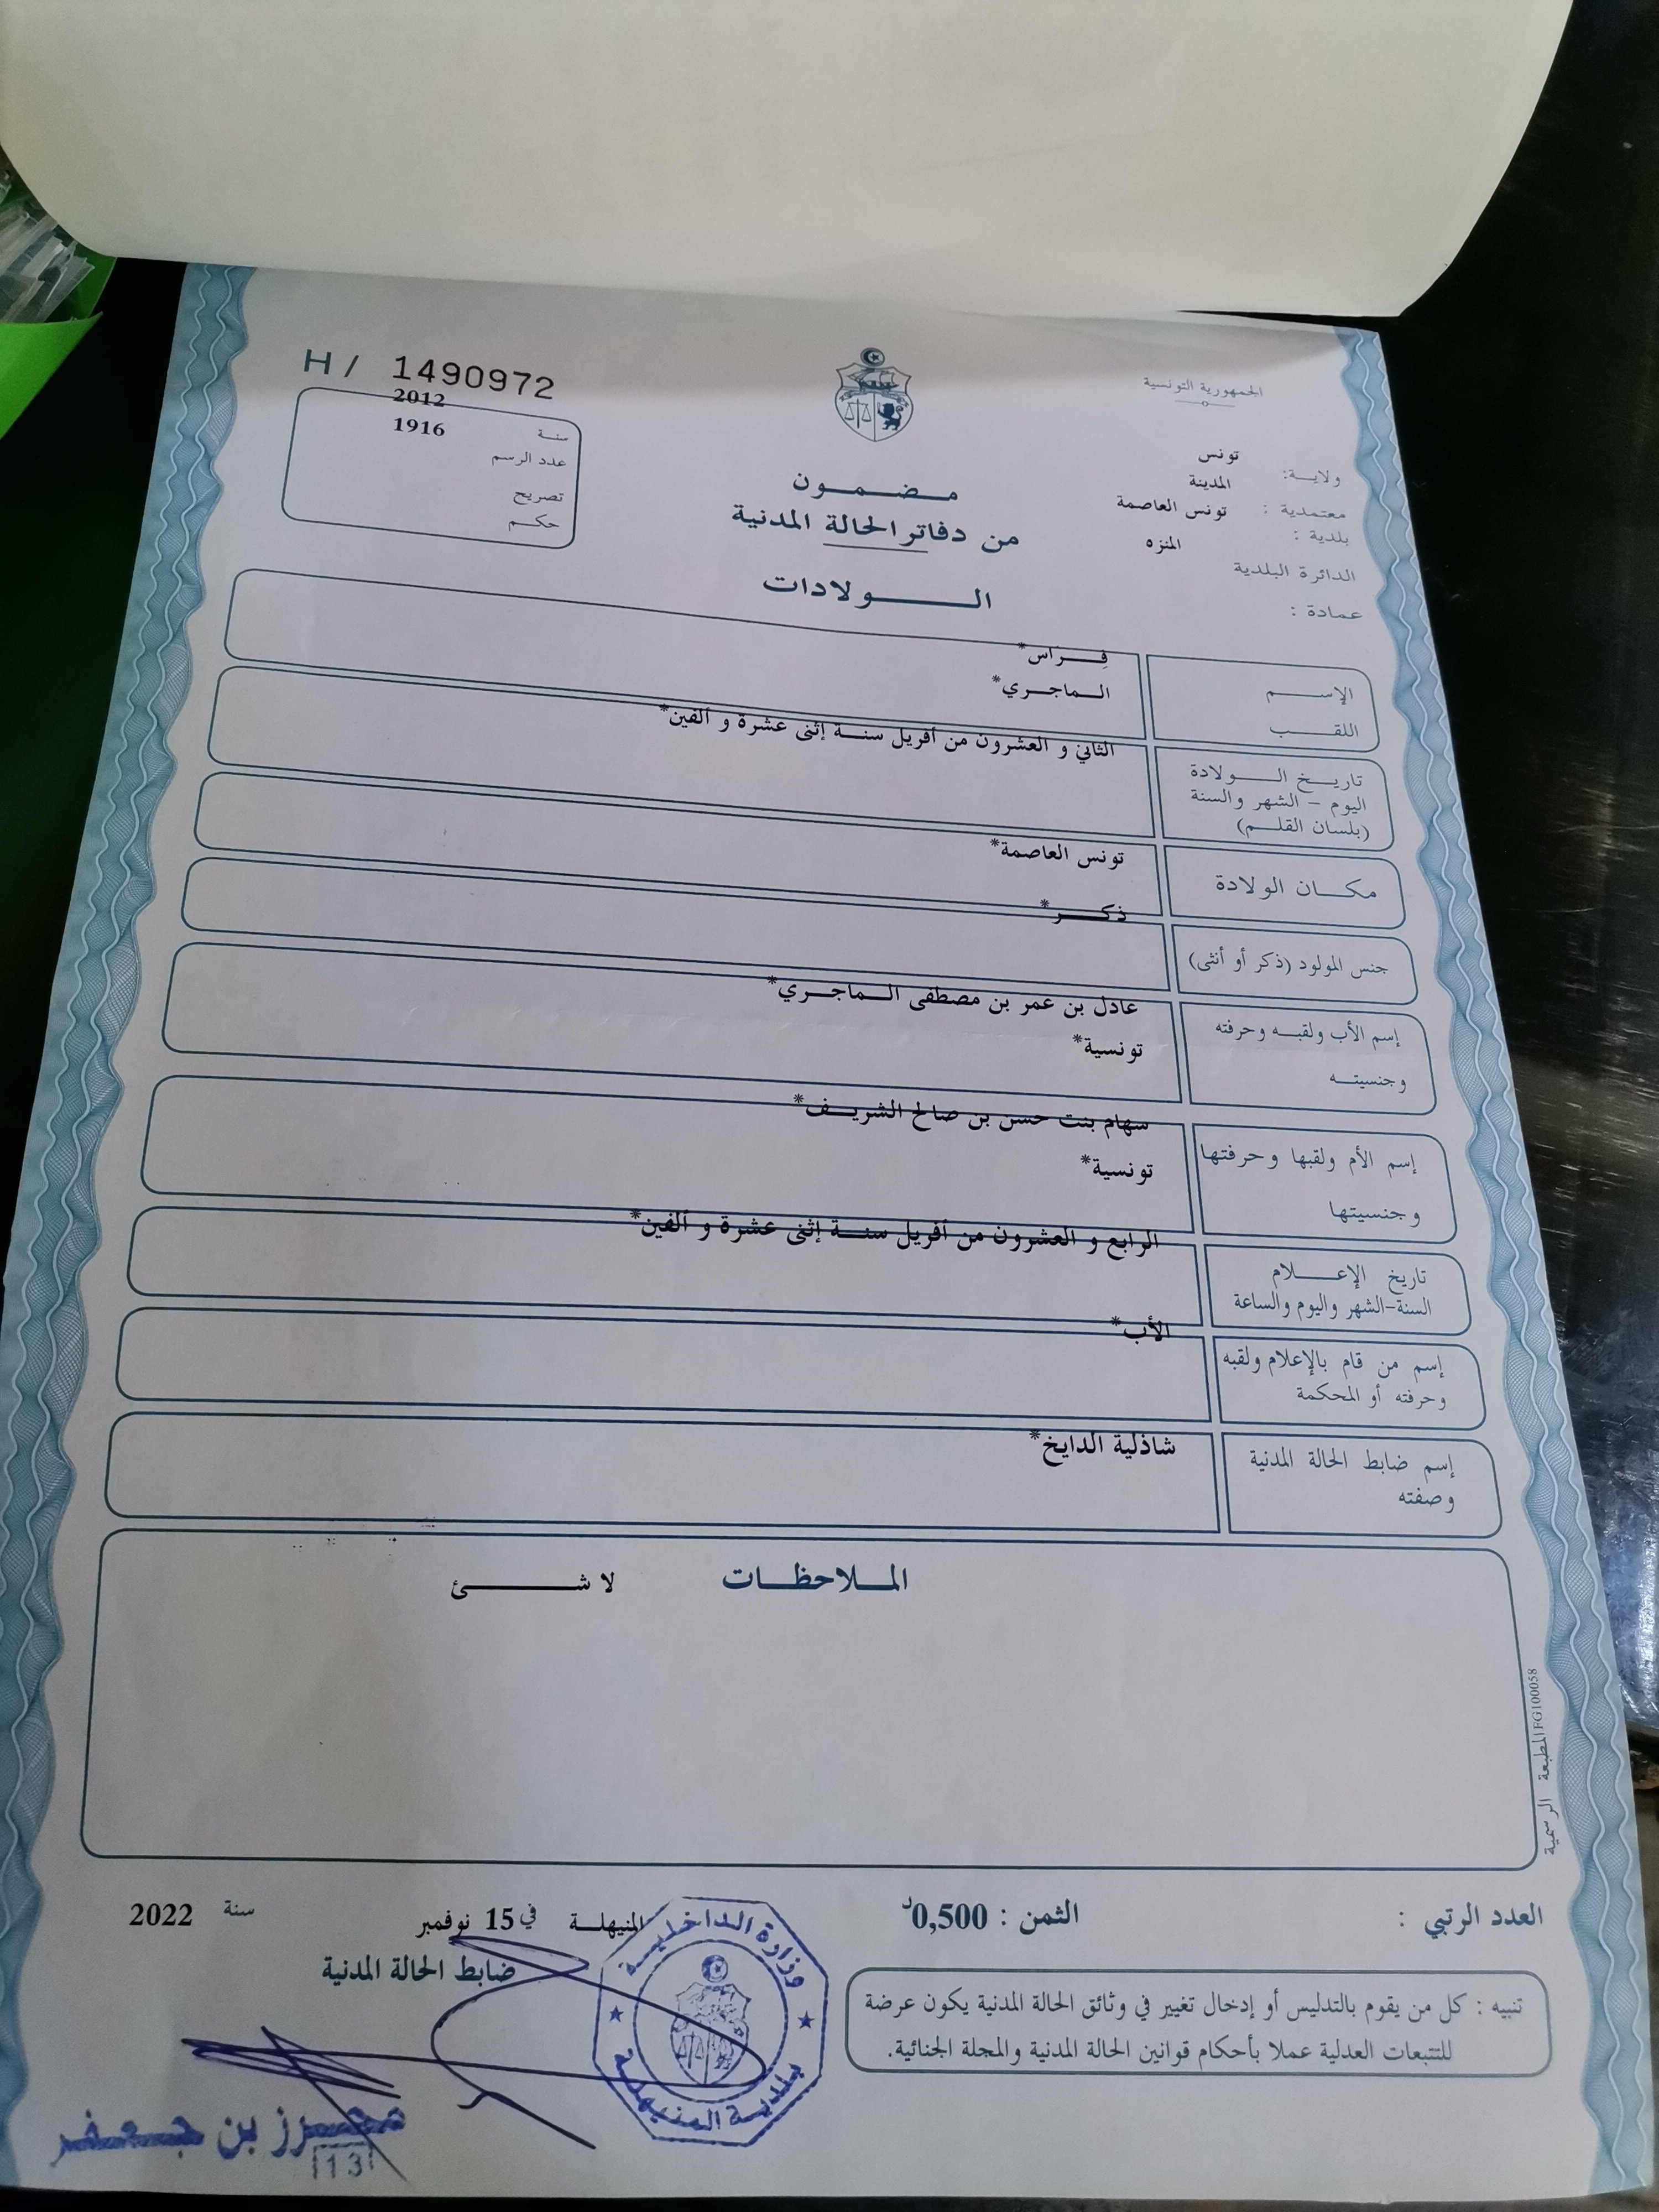 الجمهورية التونسية
ولايــة: تونس
معتمدية : المدينة
بلدية : تونس العاصمة
الدائرة البلدية المنزه
عمادة :
H / 1490972
سنة 2012
عدد الرسم 1916
تصريح
حكم
مضمون
من دفاتر الحالة المدنية
الولادات
الإسم فِراس*
اللقب الماجري*
تاريخ الولادة
اليوم - الشهر والسنة
(بلسان القلم)
الثاني و العشرون من أفريل سنة إثنى عشرة و ألفين*
مكان الولادة تونس العاصمة*
جنس المولود (ذكر أو أنثى) ذكر*
إسم الأب ولقبه وحرفته عادل بن عمر بن مصطفى الماجري*
وجنسيته تونسية*
إسم الأم ولقبها وحرفتها سهام بنت حسن بن صالح الشريف*
وجنسيتها تونسية*
تاريخ الإعلام
السنة-الشهر واليوم والساعة
الرابع و العشرون من أفريل سنة إثنى عشرة و ألفين*
إسم من قام بالإعلام ولقبه
وحرفته أو المحكمة
الأب*
إسم ضابط الحالة المدنية
وصفته
شاذلية الدايخ*
الملاحظات لا شئ
المطبعة الرسمية FG100058
العدد الرتبي : الثمن : 0,500د المنيهلة في 15 نوفمبر سنة 2022
ضابط الحالة المدنية
تنبيه : كل من يقوم بالتدليس أو إدخال تغيير في وثائق الحالة المدنية يكون عرضة
للتتبعات العدلية عملا بأحكام قوانين الحالة المدنية والمجلة الجنائية.
وزارة الداخلية
بلدية المنيهلة
محرز بن جعفر
13